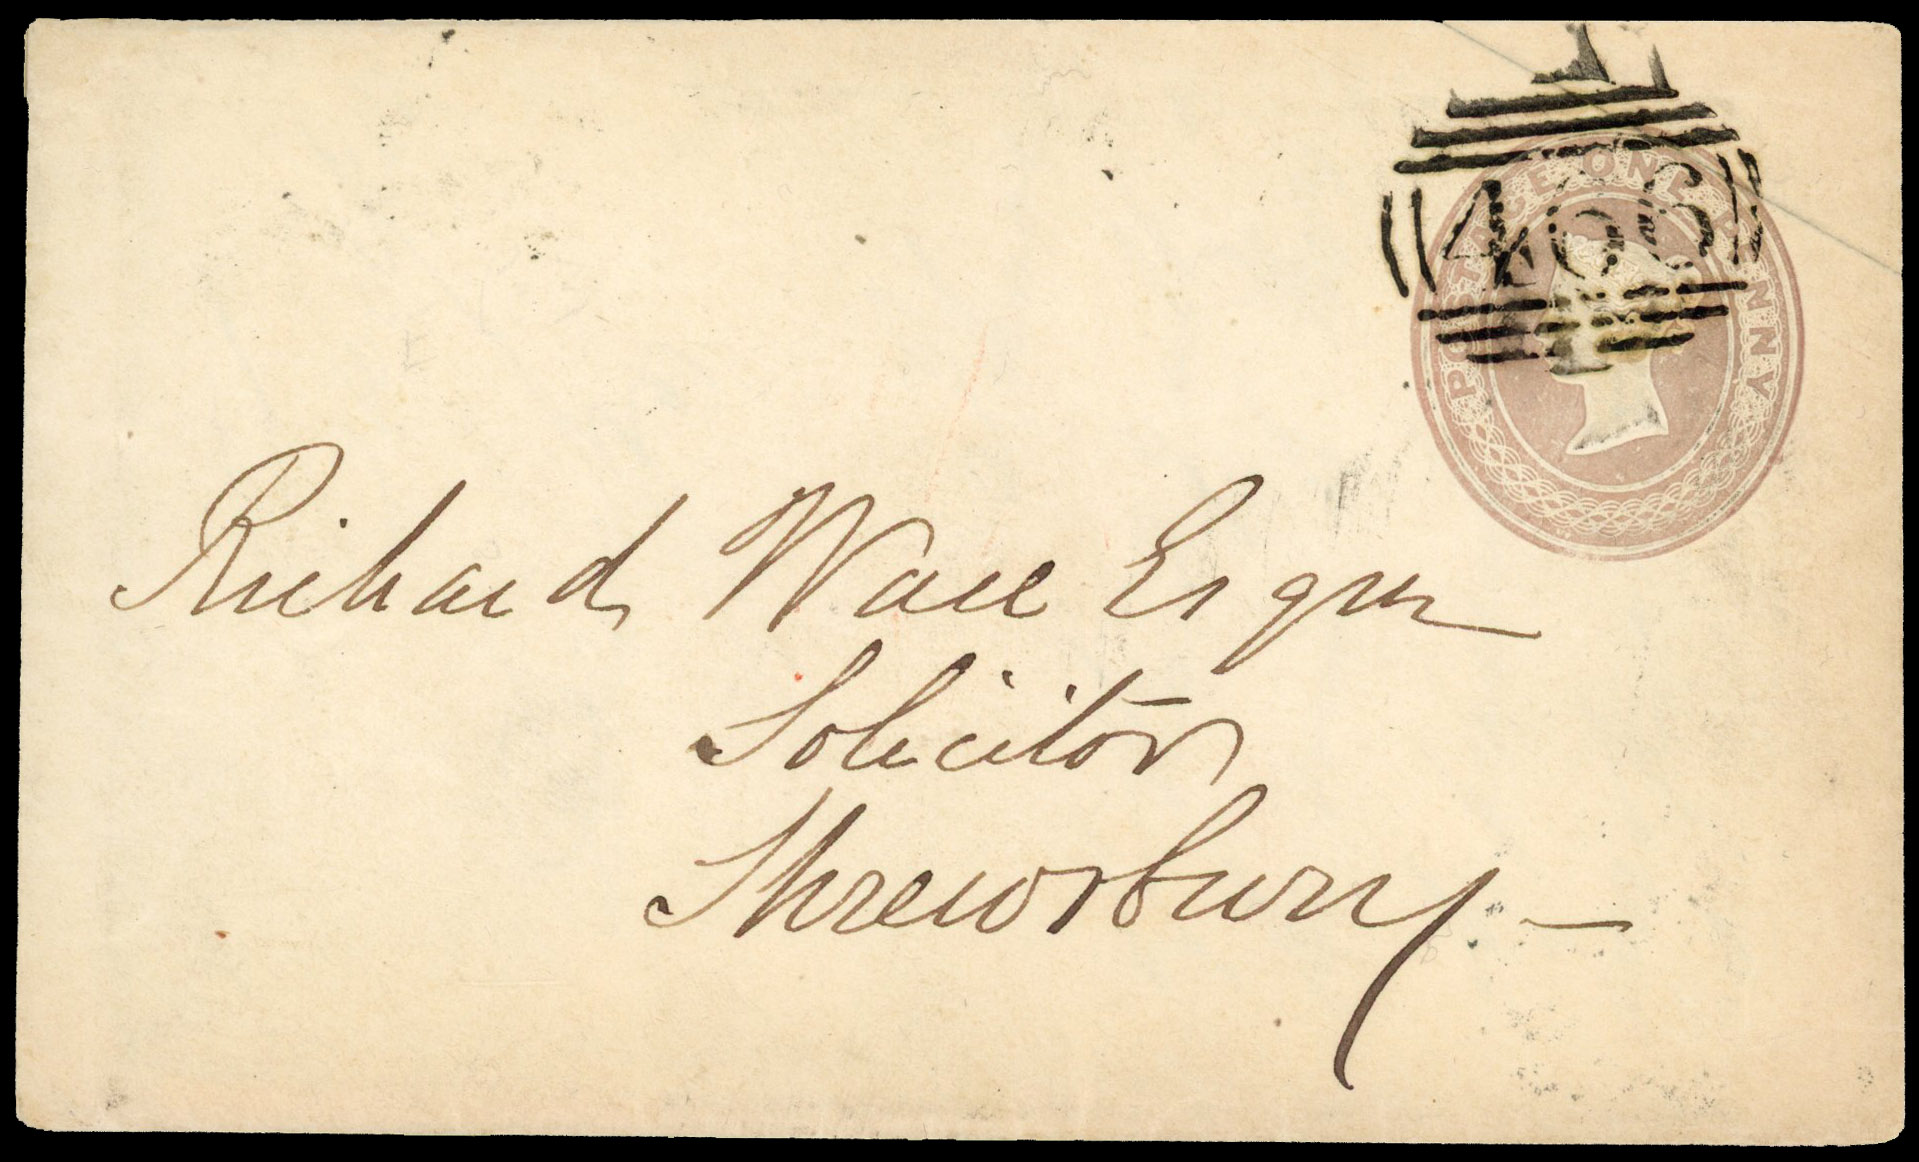 POSTAGE ONE PENNY
466
Richard Wace Esqre
Solicitor
Shrewsbury —